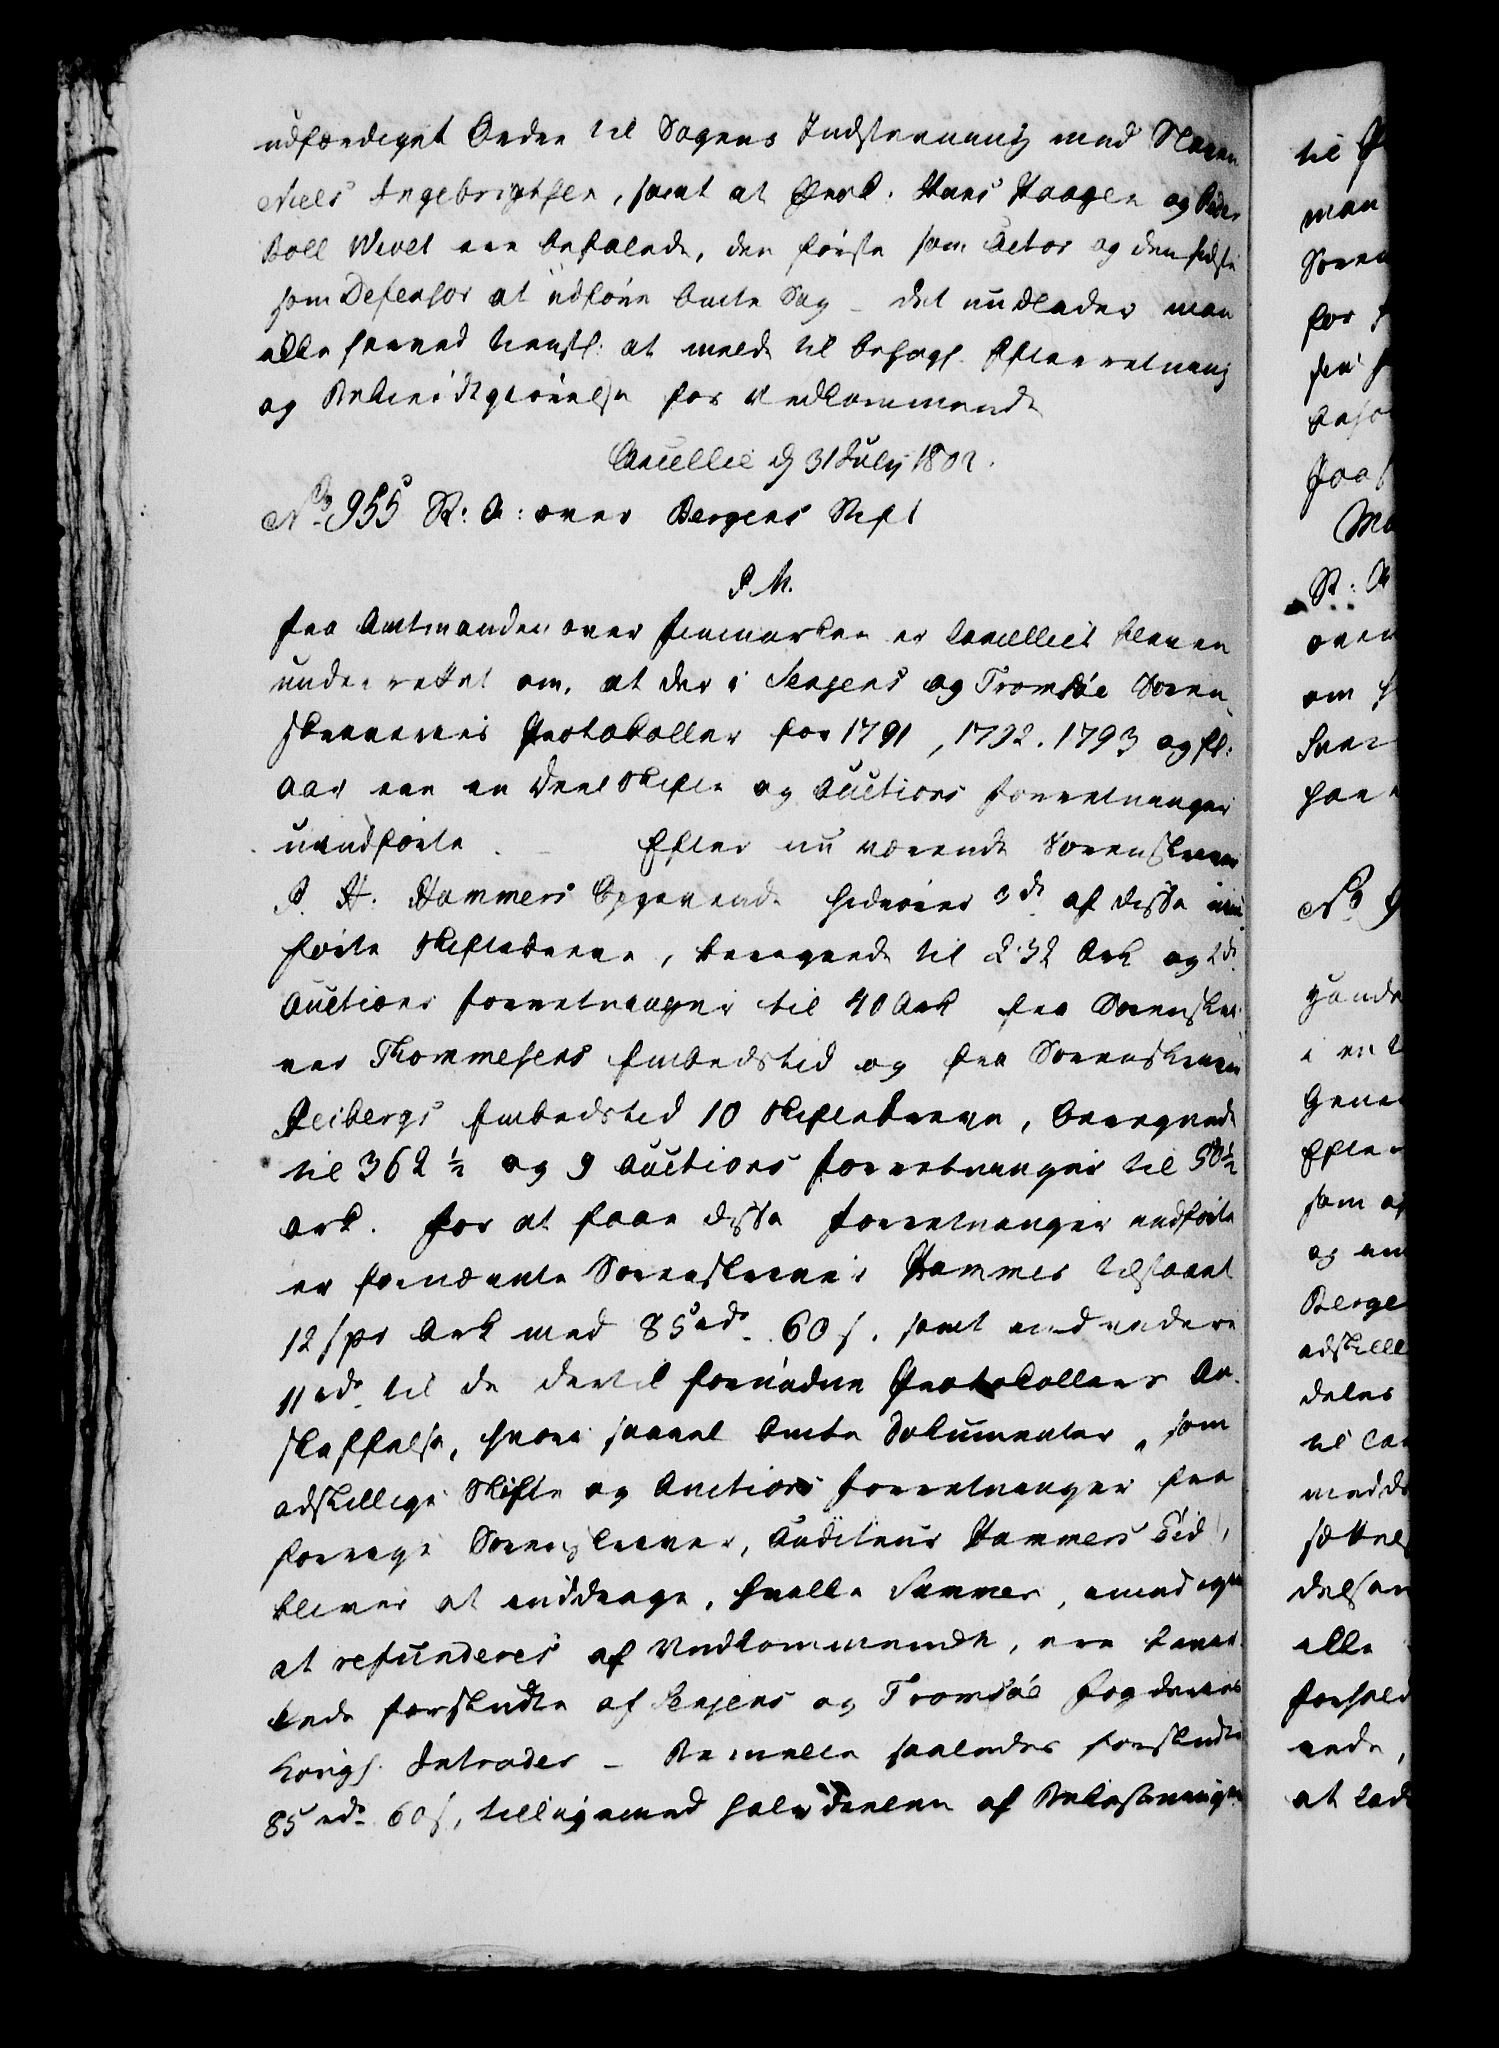 udfærdiget Ordre til Sagens Indstævning med Slaven
Niels Ingebrigtsen, samt at Proc. Hans Haagen og Peder
Boll Wivel ere befalede, den første som Actor og den sidste
som Defensor at udføre bemte Sag – det undlader man
ikke herved tienstl: at melde til behagl. Efterretning
og Bekiendtgiørelse for Vedkommende
Cancellie d 31 July 1802.
No 955 St: A: over Bergens Stift
P. M.
Fra Amtmanden over Finmarken er Cancelliet bleven
underrettet om, at der i Senjens og Tromsøe Soren-
skriveries Protokoller for 1791, 1792. 1793 og fl:
Aar ere en Deel Skifte og Auctions Forretninger
uindførte. – Efter nu værende Sorenskriver
P. H. Hammers Opgivende hidrører 3de af disse uind
førte Skiftebreve, beregnede til 232 Ark og 2de
Auctions Forretninger til 40 Ark fra Sorenskri-
ver Thommesens Embedstid og fra Sorenskriver
Heibergs Embedstid 10 Skiftebreve, beregnede
til 362 ½ og 9 Auctions Forretninger til 50½
Ark. For at faae disse Forretninger indførte
er fornævnte Sorenskriver Hammer tilstaaet
12 s pr Ark med 85 rdr. 60 s. samt endvidere
11 rdr. til de dertil fornødne Protokollers An-
skaffelse, hvori saavel bemte Dokumenter, som
adskillige Skifte og Auctions Forretninger fra
forrige Sorenskriver, Auditeur Hammers Tid,
bliver at inddrage, hvilke Summer, imod igien
at refunderes af Vedkommende, ere bevil-
gede forskudte af Senjens og Tromsøe Fogderies
Kongl. Intrader – Bemelte saaledes forskudte
85 rdr. 60 s, tilligemed halvdeelen af Bekostningen